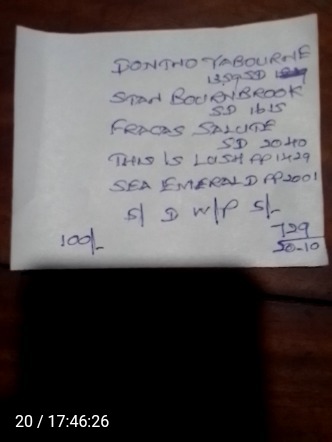 DONTHO YABOURNE
1359 SD
STAN BOURNBROOK
SD 1615
FRACAS SALUTE
SD 2040
THIS IS LUSH PP 1429
SEA EMERALD PP 2001
S/ D W/P S/-
100/-
729
50-10
20 / 17:46:26